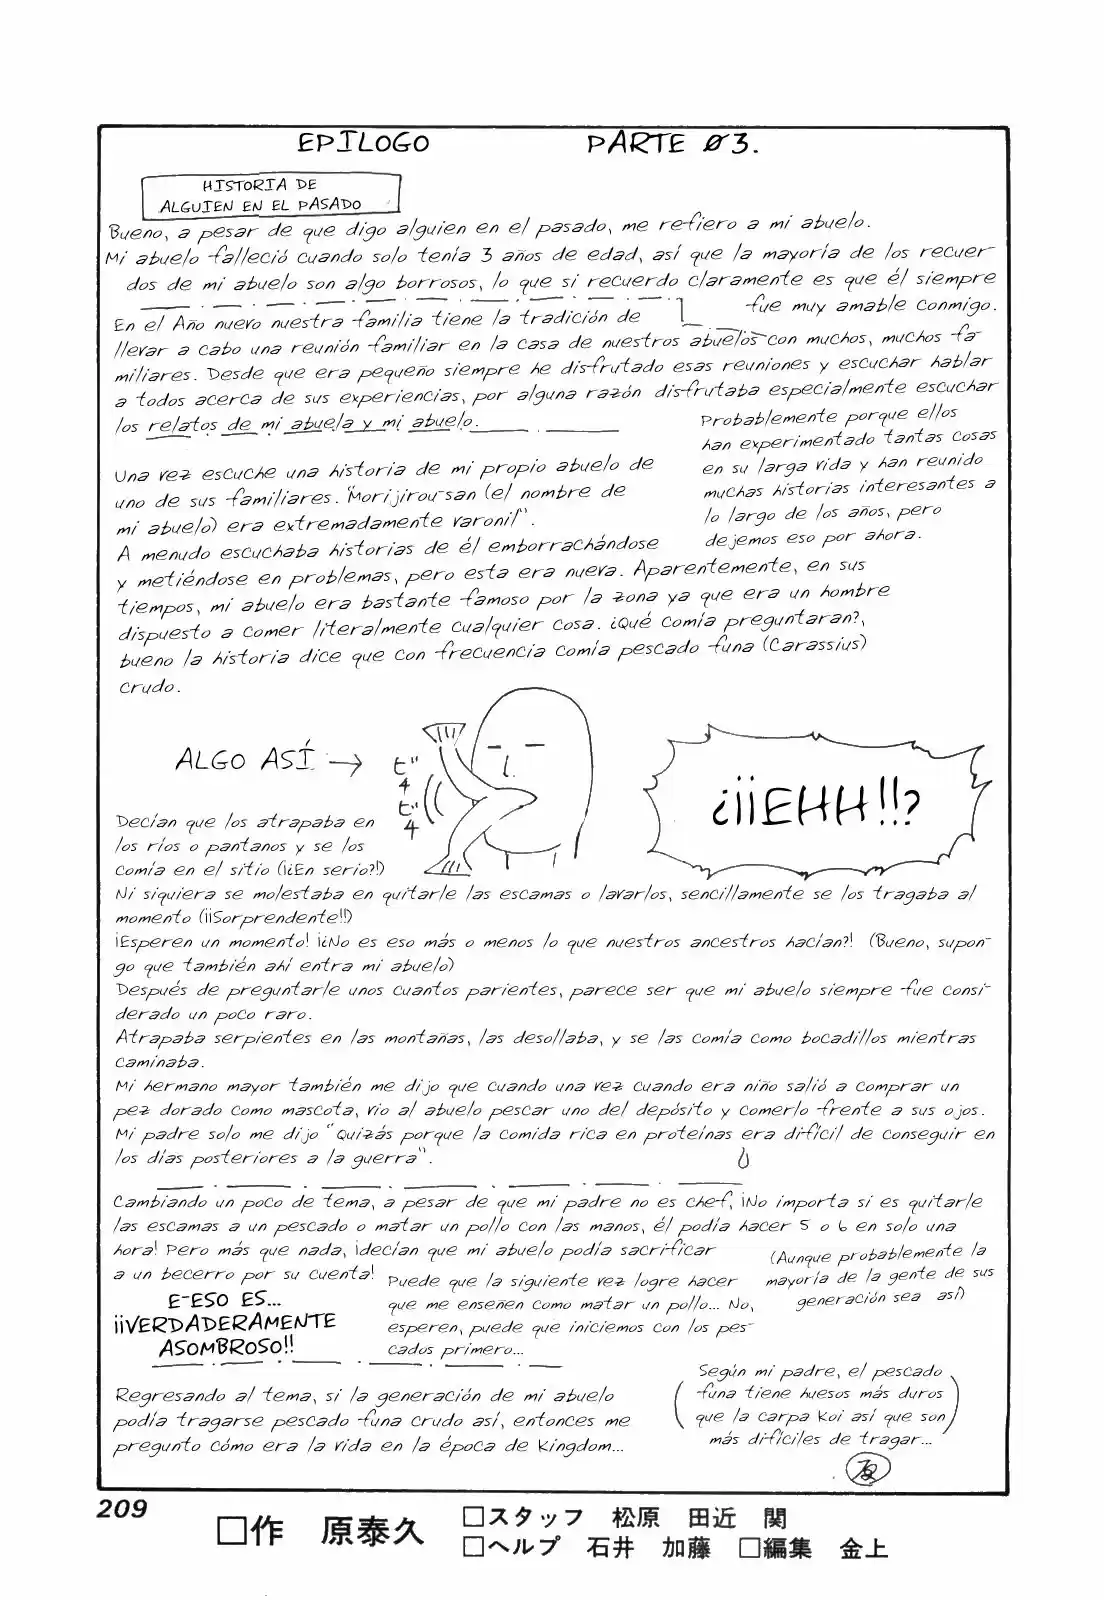 EPILOGO PARTE 03.
HISTORIA DE
ALGUIEN EN EL PASADO
Bueno, a pesar de que digo alguien en el pasado, me refiero a mi abuelo.
Mi abuelo falleció cuando solo tenía 3 años de edad, así que la mayoría de los recuer-
dos de mi abuelo son algo borrosos, lo que si recuerdo claramente es que él siempre
fue muy amable conmigo.
En el Año nuevo nuestra familia tiene la tradición de
llevar a cabo una reunión familiar en la casa de nuestros abuelos con muchos, muchos fa-
miliares. Desde que era pequeño siempre he disfrutado esas reuniones y escuchar hablar
a todos acerca de sus experiencias, por alguna razón disfrutaba especialmente escuchar
los relatos de mi abuela y mi abuelo.
Probablemente porque ellos
han experimentado tantas cosas
en su larga vida y han reunido
muchas historias interesantes a
lo largo de los años, pero
dejemos eso por ahora.
Una vez escuche una historia de mi propio abuelo de
uno de sus familiares. "Morijirou-san (el nombre de
mi abuelo) era extremadamente varonil".
A menudo escuchaba historias de él emborrachándose
y metiéndose en problemas, pero esta era nueva. Aparentemente, en sus
tiempos, mi abuelo era bastante famoso por la zona ya que era un hombre
dispuesto a comer literalmente cualquier cosa. ¿Qué comía preguntaran?,
bueno la historia dice que con frecuencia comía pescado funa (Carassius)
crudo.
ALGO ASÍ →
ピチ
ピチ
¿¡¡EHH!!?
Decían que los atrapaba en
los ríos o pantanos y se los
comía en el sitio (¡¿En serio?!)
Ni siquiera se molestaba en quitarle las escamas o lavarlos, sencillamente se los tragaba al
momento (¡¡Sorprendente!!)
¡Esperen un momento! ¡¿No es eso más o menos lo que nuestros ancestros hacían?! (Bueno, supon-
go que también ahí entra mi abuelo)
Después de preguntarle unos cuantos parientes, parece ser que mi abuelo siempre fue consi-
derado un poco raro.
Atrapaba serpientes en las montañas, las desollaba, y se las comía como bocadillos mientras
caminaba.
Mi hermano mayor también me dijo que cuando una vez cuando era niño salió a comprar un
pez dorado como mascota, vio al abuelo pescar uno del depósito y comerlo frente a sus ojos.
Mi padre solo me dijo "Quizás porque la comida rica en proteínas era difícil de conseguir en
los días posteriores a la guerra".
Cambiando un poco de tema, a pesar de que mi padre no es chef, ¡No importa si es quitarle
las escamas a un pescado o matar un pollo con las manos, él podía hacer 5 o 6 en solo una
hora! Pero más que nada, ¡decían que mi abuelo podía sacrificar
a un becerro por su cuenta!
(Aunque probablemente la
mayoría de la gente de sus
generación sea así)
E-ESO ES...
¡¡VERDADERAMENTE
ASOMBROSO!!
Puede que la siguiente vez logre hacer
que me enseñen como matar un pollo... No,
esperen, puede que iniciemos con los pes-
cados primero...
Regresando al tema, si la generación de mi abuelo
podía tragarse pescado funa crudo así, entonces me
pregunto cómo era la vida en la época de Kingdom...
(Según mi padre, el pescado
funa tiene huesos más duros
que la carpa Koi así que son
más difíciles de tragar...)
209
□作 原泰久
□スタッフ 松原 田近 関
□ヘルプ 石井 加藤 □編集 金上